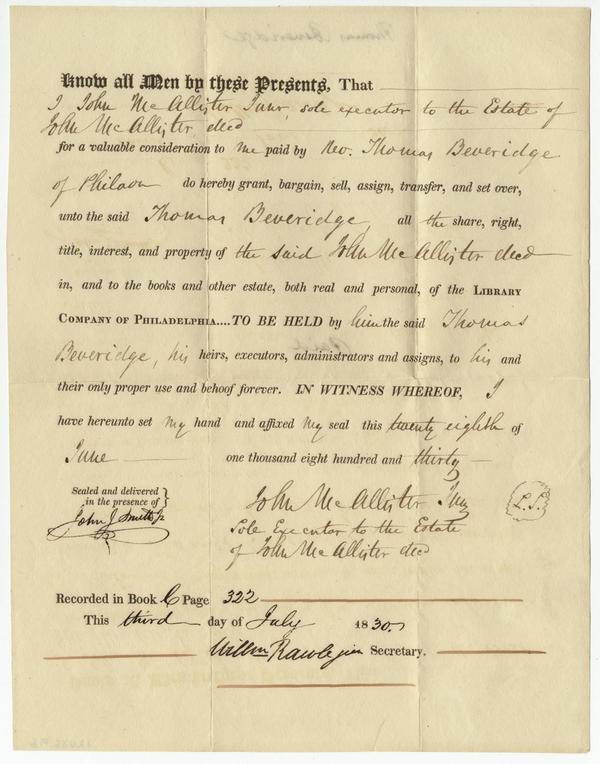 Thomas Beveridge
Know all Men by these Presents, That
I John McAllister Junr, sole executor to the Estate of
John McAllister, decd
for a valuable consideration to me paid by Rev. Thomas Beveridge
of Philada do hereby grant, bargain, sell, assign, transfer, and set over,
unto the said Thomas Beveridge, all the share, right,
title, interest, and property of the said John McAllister decd
in, and to the books and other estate, both real and personal, of the LIBRARY
COMPANY OF PHILADELPHIA....TO BE HELD by him the said Thomas
Beveridge, his heirs, executors, administrators and assigns, to his and
their only proper use and behoof forever. IN WITNESS WHEREOF, I
have hereunto set my hand and affixed my seal this twenty eighth of
June one thousand eight hundred and thirty
Sealed and delivered
in the presence of
John J. Smith Jr
John McAllister Junr L.S.
Sole Executor to the Estate
of John McAllister decd
Recorded in Book C Page 322
This third day of July 1830
William Rawle jun Secretary.